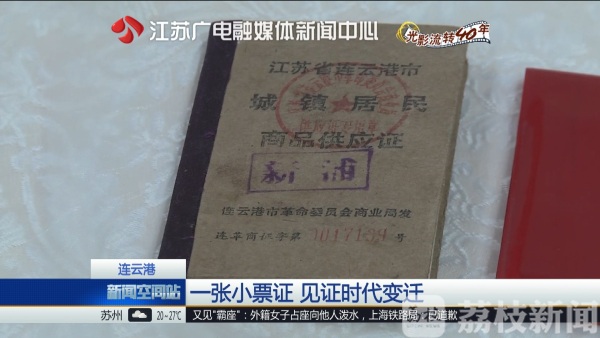 江苏广电融媒体新闻中心
光影流转40年
江苏省连云港市
城镇居民
商品供应证
新浦
连云港市革命委员会商业局发
连革商供字第 号
连云港
新闻空间站
一张小票证 见证时代变迁
荔枝新闻
苏州 20~27℃ 又见"霸座"：外籍女子占座向他人泼水，上海铁路局：已道歉